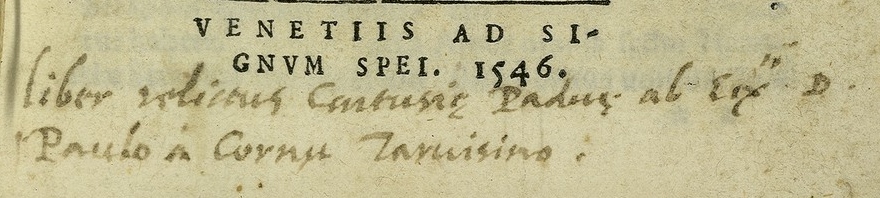 VENETIIS AD SI-
GNVM SPEI. 1546.
liber relictus Cartusię Paduę ab Ex.^ti D.
Paulo a Cornu Taruisino.